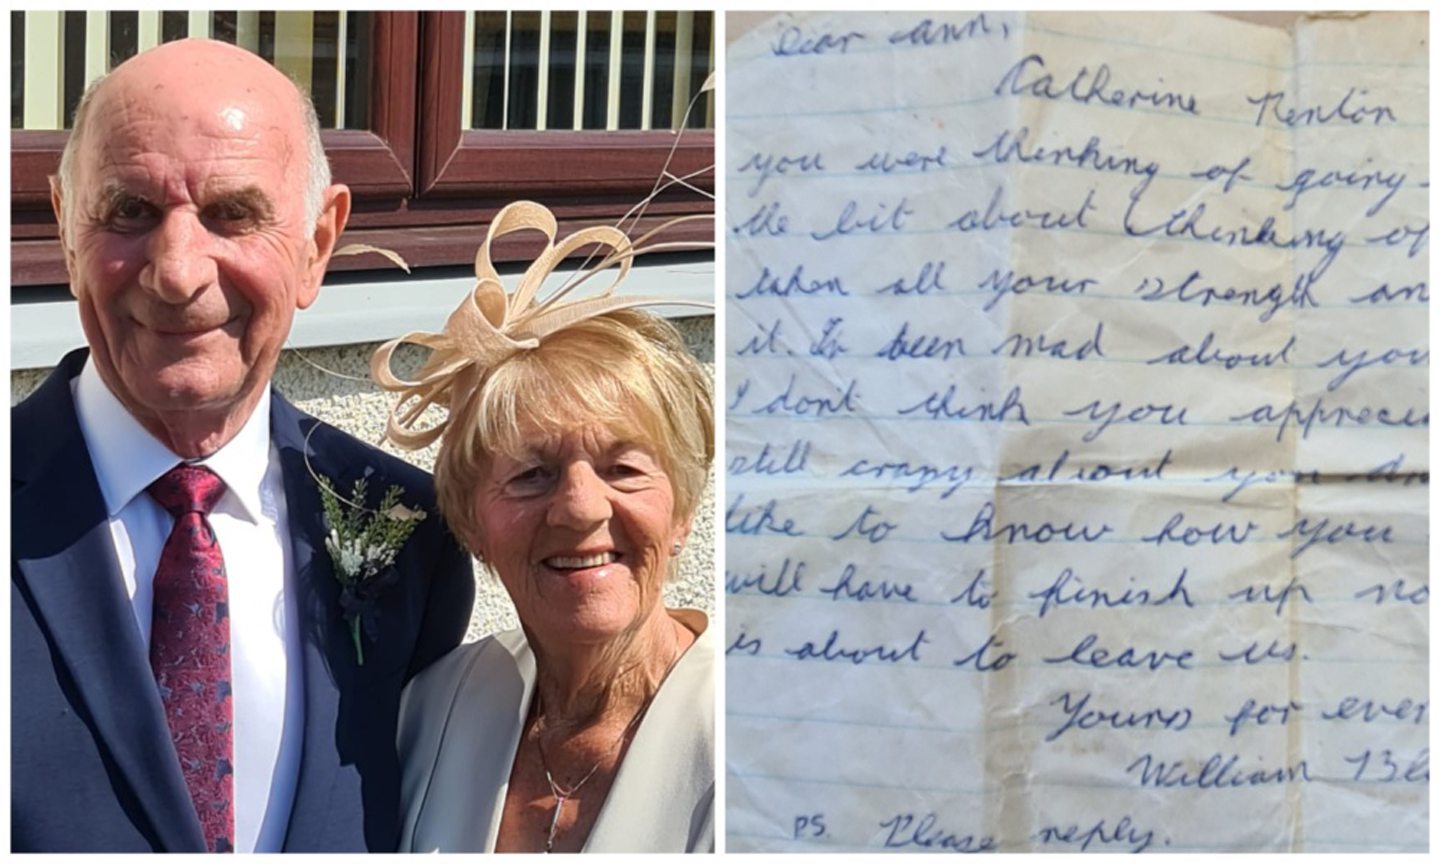 Dear ann,
Catherine Renton
you were thinking of going
the bit about (thinking of
taken all your strength an
it. Iv been mad about you
I dont think you apprecia
still crazy about you an
like to know how you
will have to finish up no
is about to leave us.
Yours for ever
William Bl
PS. Please reply.